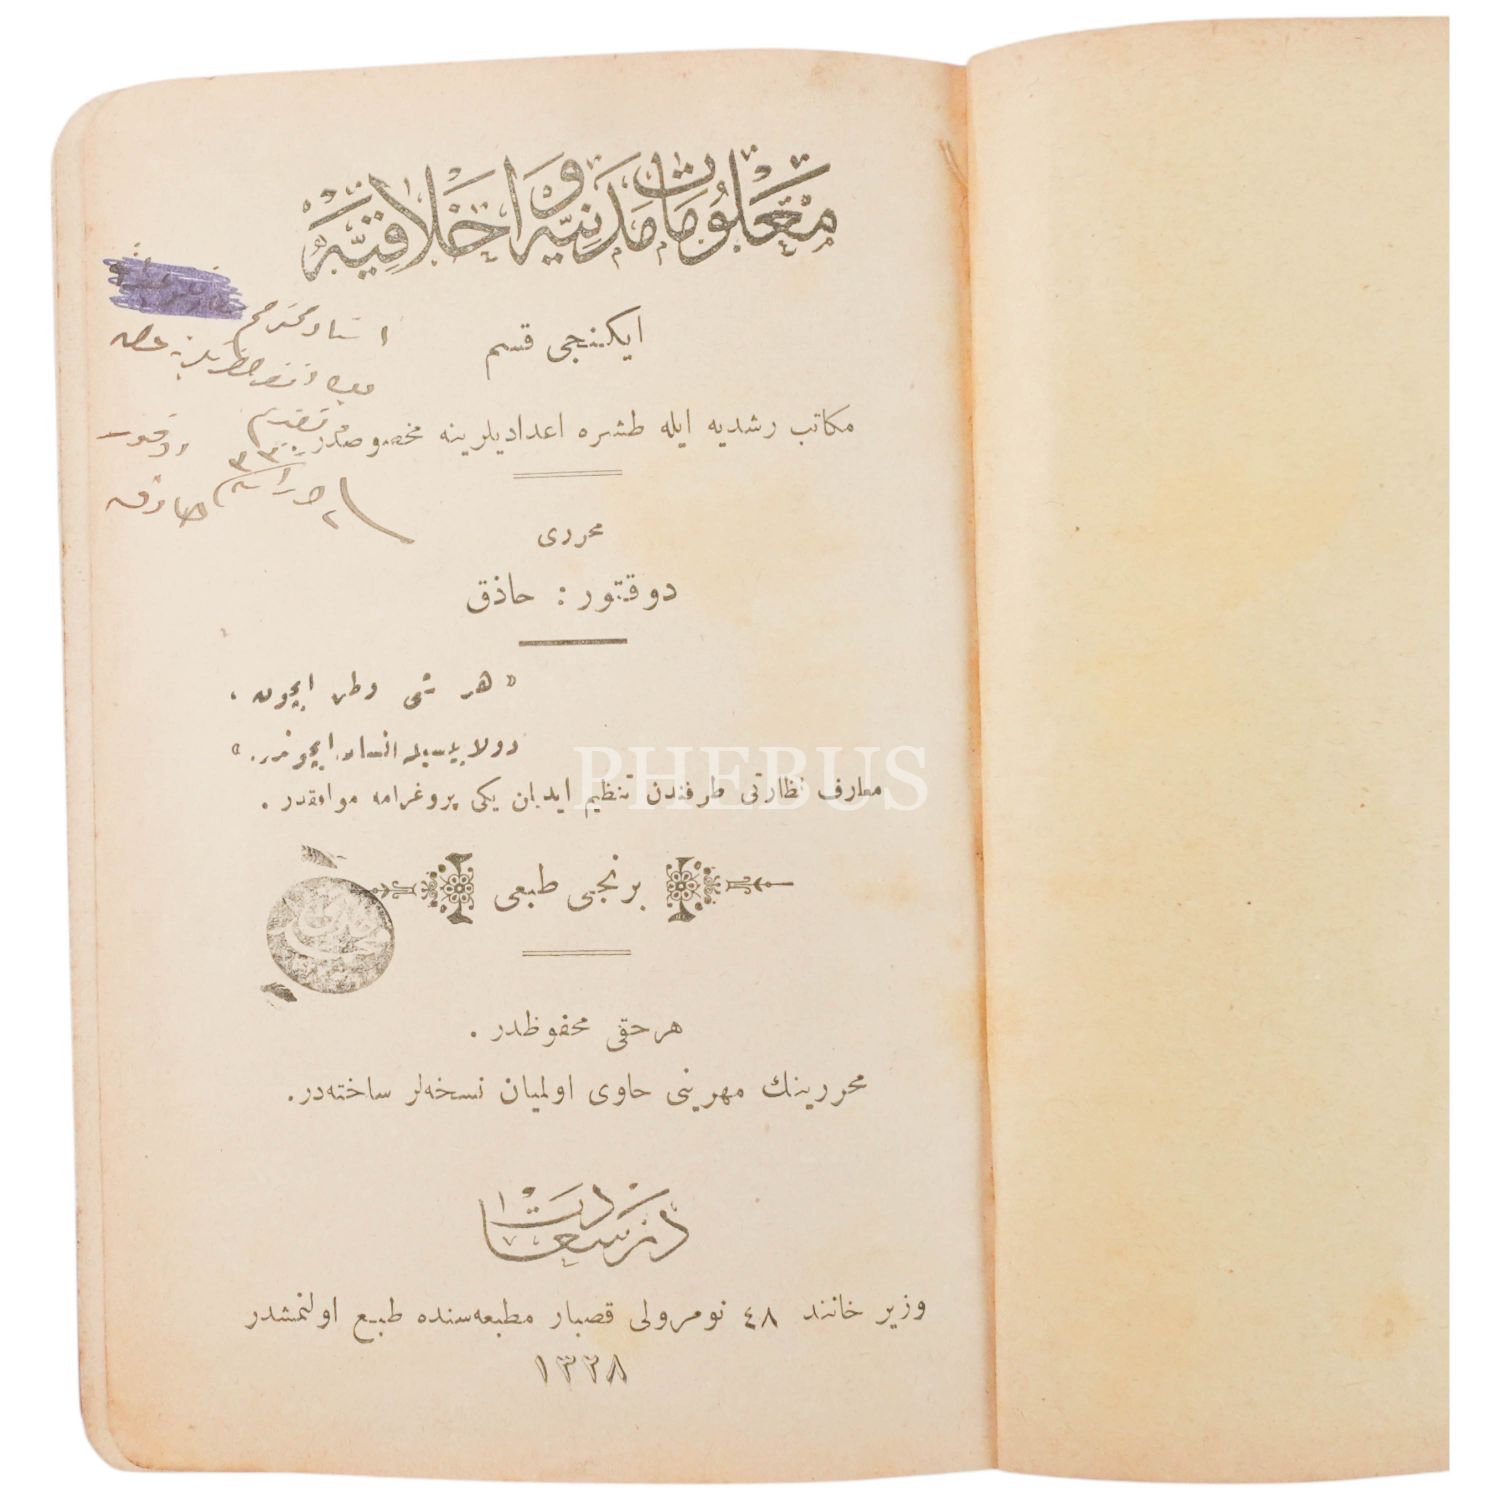 معلومات مدنیه و اخلاقیه
ایکنجی قسم
مکاتب رشدیه ایله طشره اعدادیلرینه مخصوصدر
محرری
دوقتور : حاذق
« هر شی وطن ایچون ،
انسان ایچوندر . »
معارف نظارتی طرفندن تنظیم ایدیلن یکی پروغرامه موافقدر .
برنجی طبعی
هر حقی محفوظدر .
محررینك مهرینی حاوی اولمیان نسخه‌لر ساخته‌در .
درسعادت
وزیر خاننده ٤٨ نومرولی قصبار مطبعه‌سنده طبع اولنمشدر
١٣٢٨
استاد محترمم
تقدیم
دوقتور
حاذق
PHEBUS